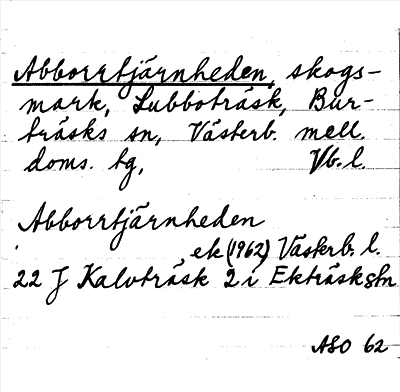 Abborrtjärnheden, skogs-
mark, Lubboträsk, Bur-
träsks sn, Västerb. mell.
doms. tg, Vb. l.
Abborrtjärnheden
ek (1962) Västerb. l.
22 J Kalvträsk 2 i Ekträsk sfn
ASO 62